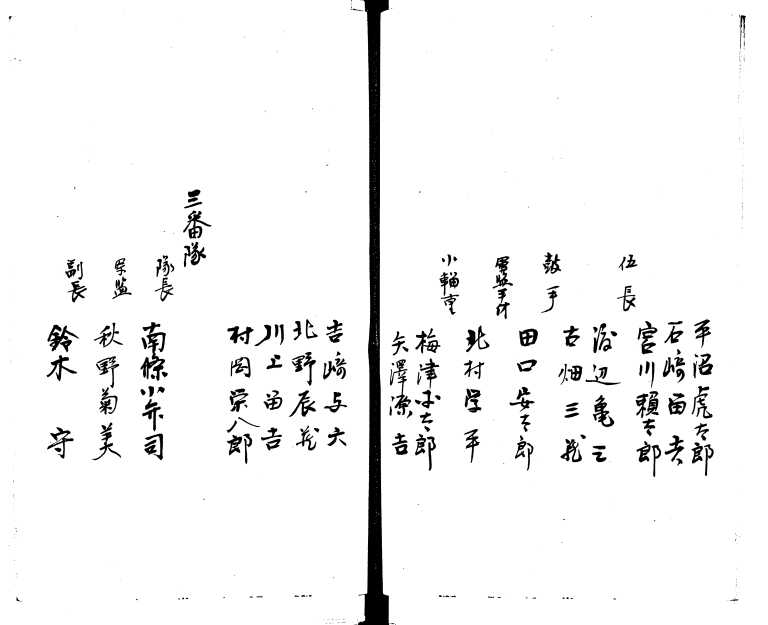 平沼虎太郎
石崎留吉
宮川頼太郎
伍長
渡辺亀三
古畑三蔵
鼓手
田口安太郎
軍監手付
北村学平
小輜重
梅津 太郎
矢澤源吉
吉崎与六
北野辰蔵
川上留吉
村岡栄八郎
三番隊
隊長
南條小弁司
軍監
秋野菊美
副長
鈴木 守